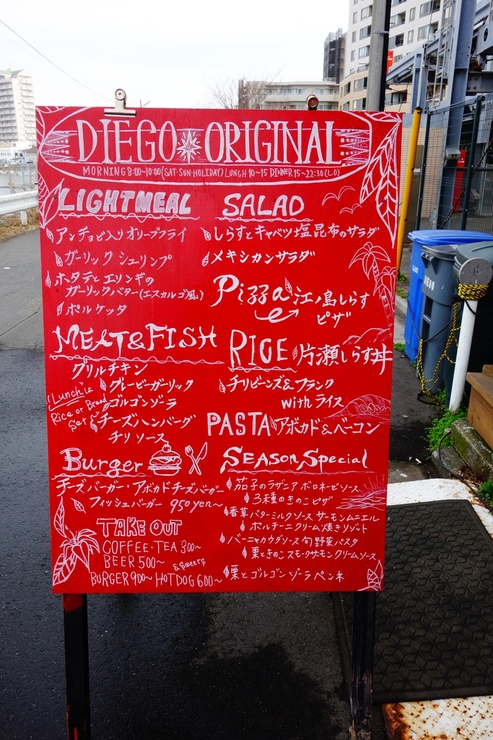 DIEGO ORIGINAL
MORNING 8:00-10:00 (SAT·SUN·HOLIDAY) LUNCH 10-15 DINNER 15-22:30 (L.O)
LIGHTMEAL
アンチョビ入りオリーブフライ
ガーリックシュリンプ
ホタテとエリンギの
ガーリックバター(エスカルゴ風)
ポルケッタ
SALAD
しらすとキャベツ塩昆布のサラダ
メキシカンサラダ
Pizza 江ノ島しらす
ピザ
MEAT&FISH
グリルチキン
グレービーガーリック
ゴルゴンゾーラ
チーズハンバーグ
チリソース
Lunch is
Rice or Bread
Set
RICE 片瀬しらす丼
チリビーンズ&フランク
with ライス
PASTA アボカド&ベーコン
Burger
チーズバーガー・アボカドチーズバーガー
フィッシュバーガー 950yen~
TAKE OUT
COFFEE·TEA 300~
BEER 500~
BURGER 900~ HOTDOG 600~
SEASON Special
茄子のラザニア ボロネーゼソース
3種のきのこピザ
香草バターミルクソース サーモンムニエル
ポルチーニクリーム焼きリゾット
バーニャカウダソース 旬野菜パスタ
栗ときのこスモークサーモンクリームソース
栗とゴルゴンゾーラペンネ